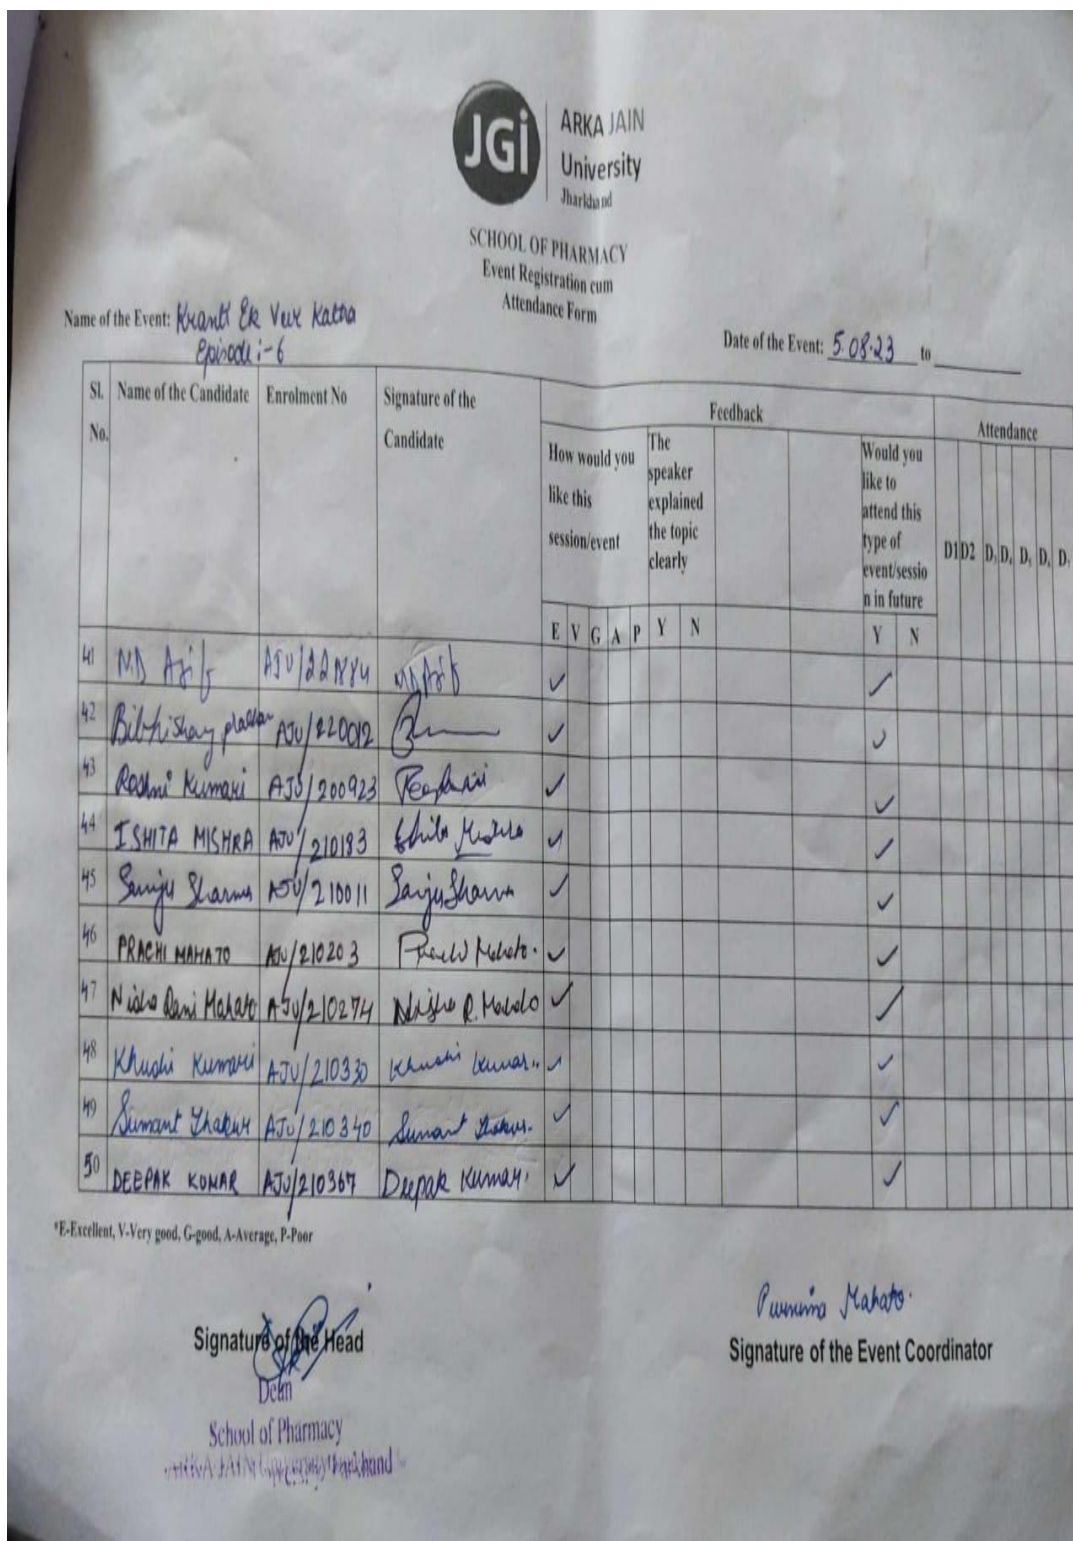 JGi
ARKA JAIN
University
Jharkhand
SCHOOL OF PHARMACY
Event Registration cum
Attendance Form
Name of the Event: Kranti Ek Veer Katha
Episode :- 6
Date of the Event: 5.08.23 to
Sl. No. Name of the Candidate Enrolment No Signature of the Candidate Feedback Attendance
How would you like this session/event
The speaker explained the topic clearly
Would you like to attend this type of event/session in future
D1 D2 D. D. D. D. D.
E V G A P Y N Y N
41 MD Asif AJU/221884 MD Asif ✓ ✓
42 Bibhishan AJU/220012 ✓ ✓
43 Rashmi Kumari AJU/200923 ✓ ✓
44 ISHITA MISHRA AJU/210183 Ishita Mishra ✓ ✓
45 Sanju Sharma AJU/210011 Sanju Sharma ✓ ✓
46 PRACHI MAHATO AJU/210203 Prachi Mahato. ✓ ✓
47 Nisha Rani Mahato AJU/210274 Nisha R. Mahato ✓ ✓
48 Khushi Kumari AJU/210330 Khushi Kumari ✓ ✓
49 Sumant Thakur AJU/210340 Sumant Thakur. ✓ ✓
50 DEEPAK KUMAR AJU/210367 Deepak Kumar. ✓ ✓
*E-Excellent, V-Very good, G-good, A-Average, P-Poor
Purnima Mahato.
Signature of the Head
Signature of the Event Coordinator
Dean
School of Pharmacy
ARKA JAIN University Jharkhand